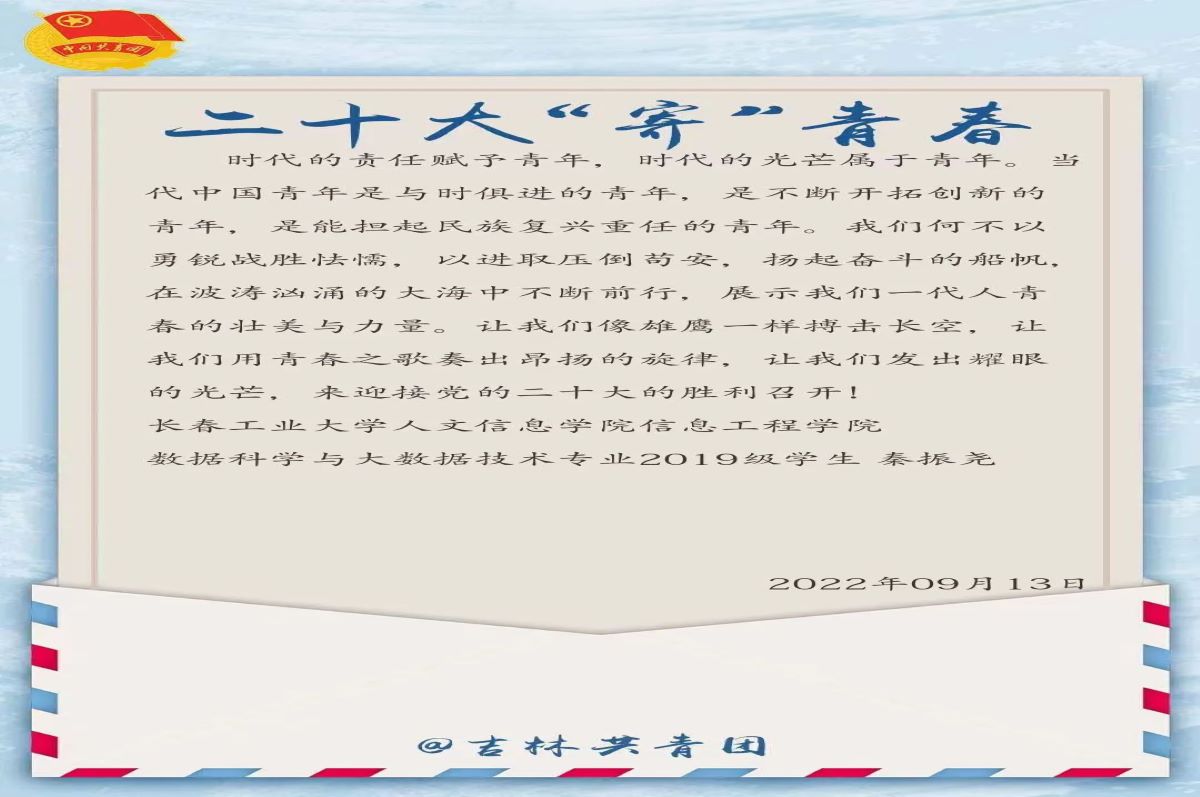 中国共青团
二十大“寄”青春
时代的责任赋予青年，时代的光芒属于青年。当
代中国青年是与时俱进的青年，是不断开拓创新的
青年，是能担起民族复兴重任的青年。我们何不以
勇锐战胜怯懦，以进取压倒苟安，扬起奋斗的船帆，
在波涛汹涌的大海中不断前行，展示我们一代人青
春的壮美与力量。让我们像雄鹰一样搏击长空，让
我们用青春之歌奏出昂扬的旋律，让我们发出耀眼
的光芒，来迎接党的二十大的胜利召开！
长春工业大学人文信息学院信息工程学院
数据科学与大数据技术专业2019级学生 秦振尧
2022年09月13日
@吉林共青团